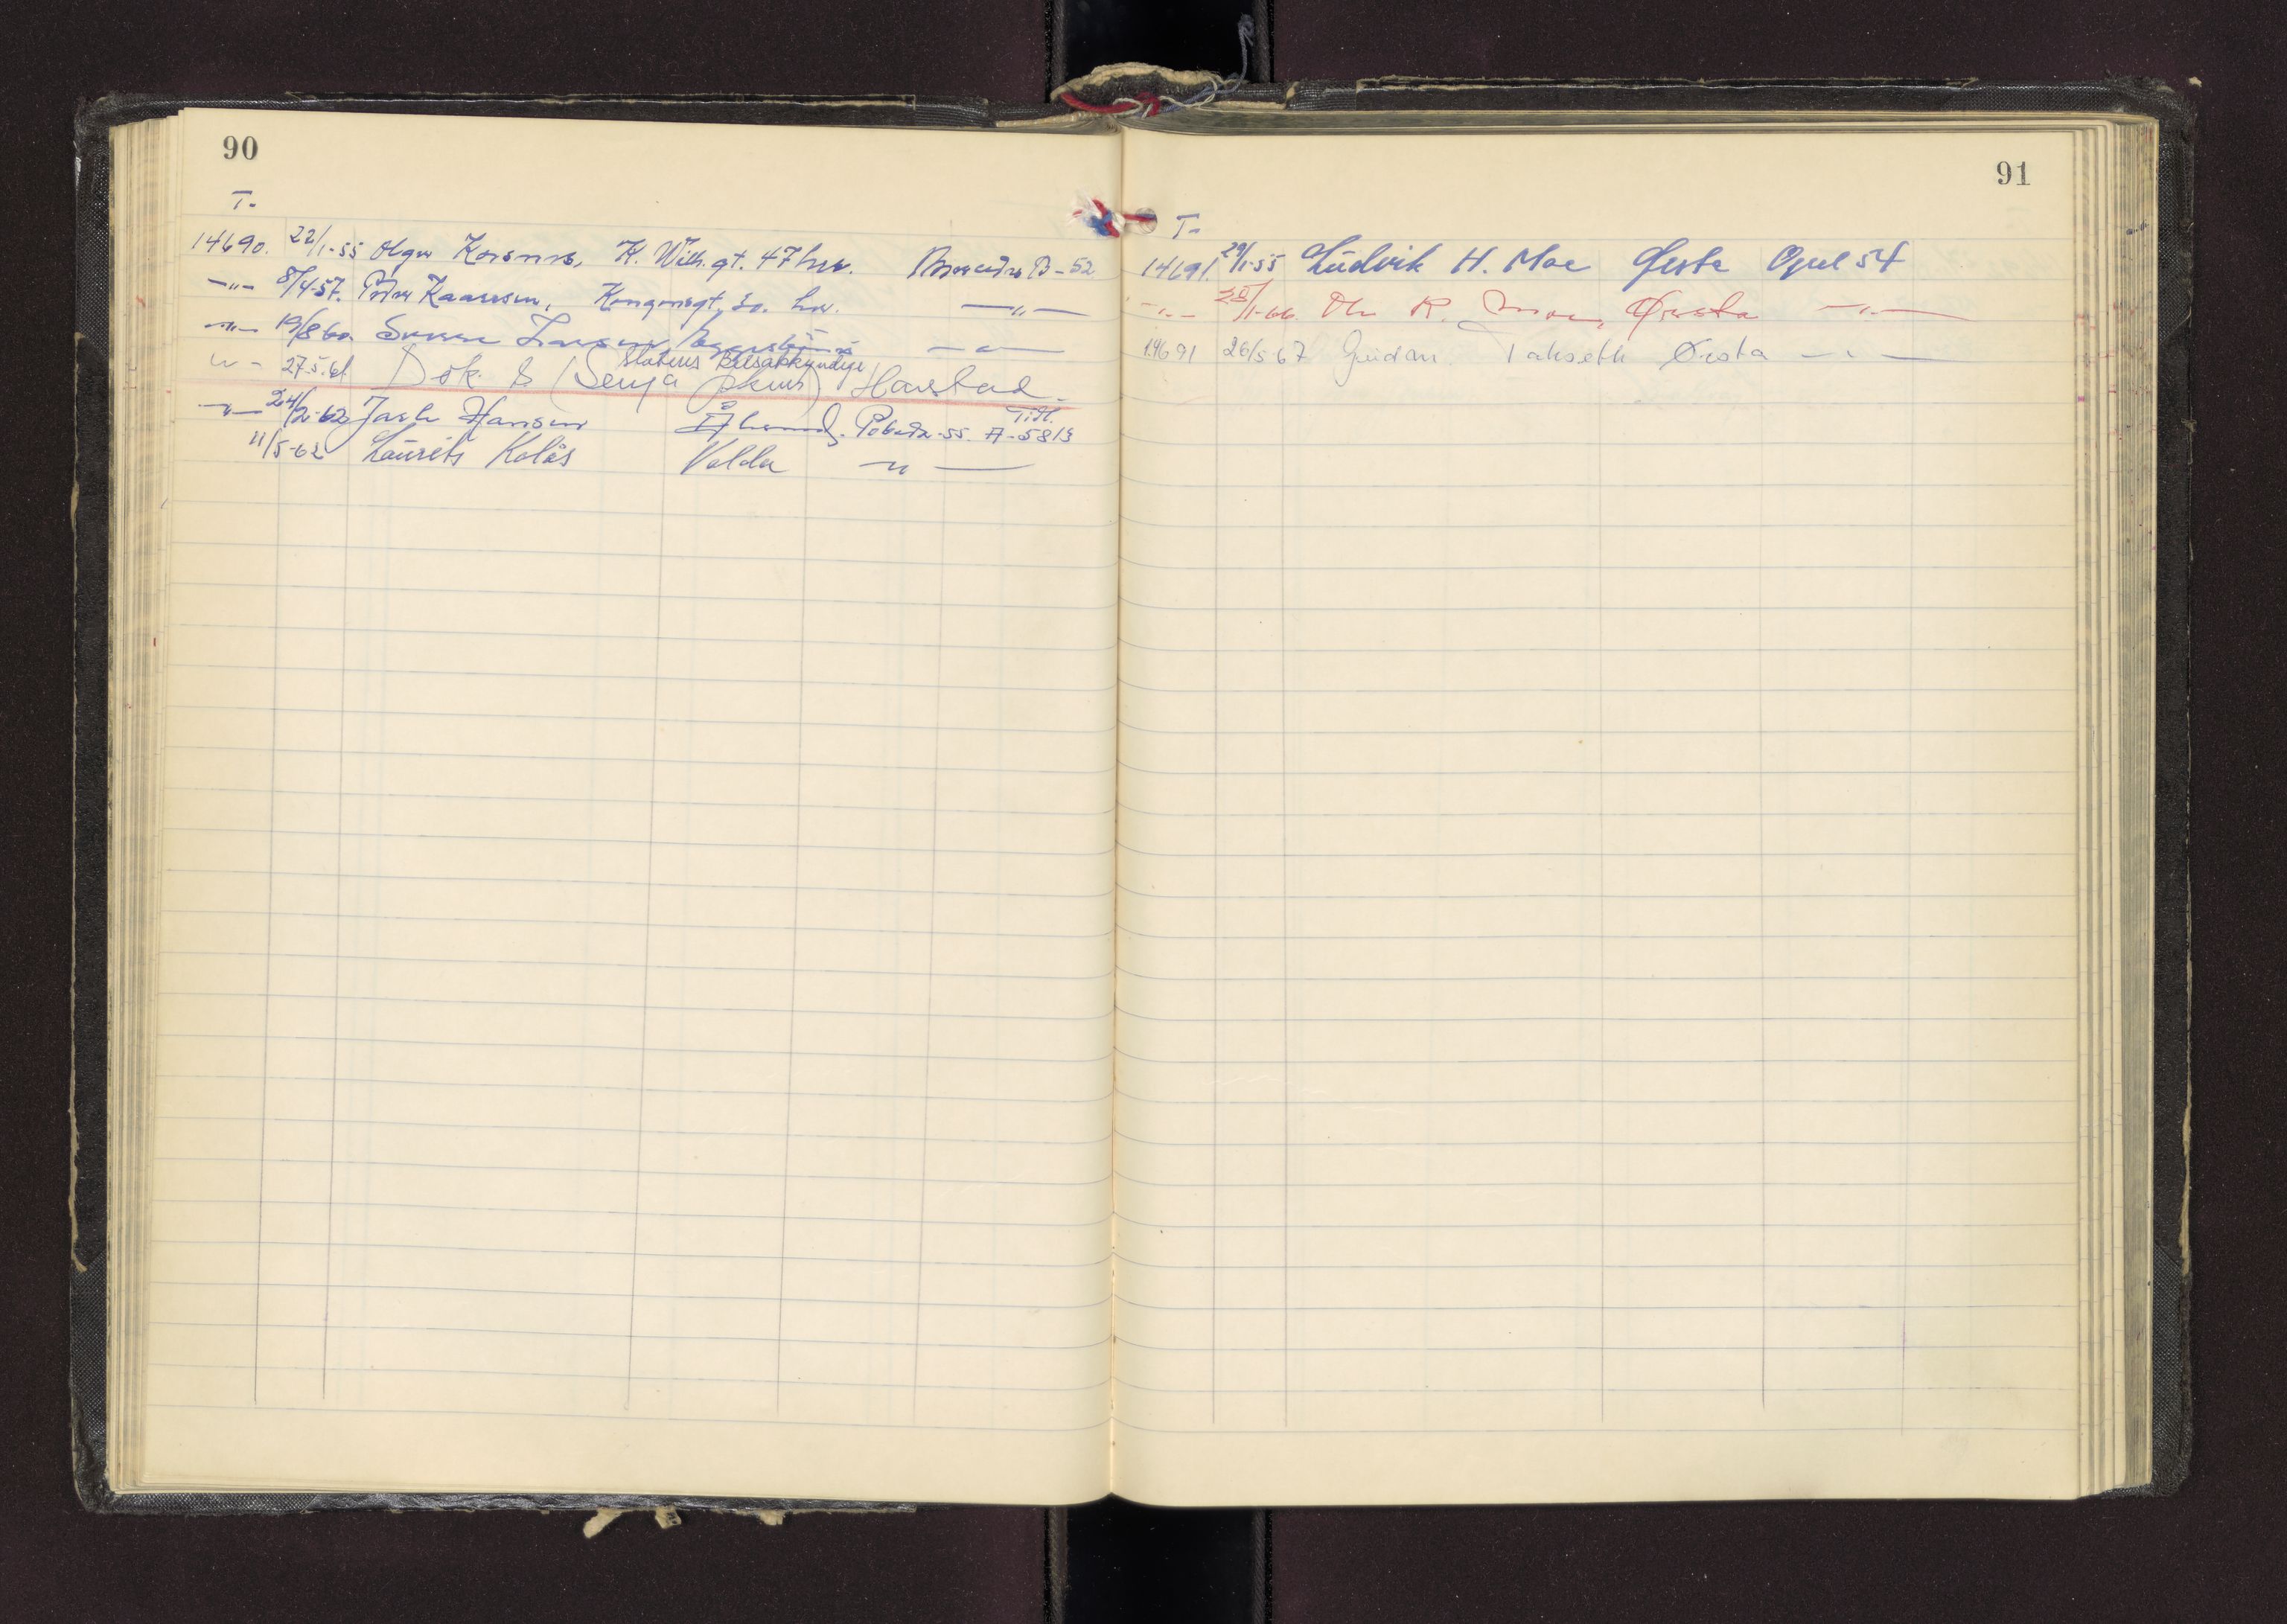 90
T-
14690. 22/1-55 Olger Korsnes, K. Wilh.gt. 47 her. Mercedes B-52
-"- 8/4-57. Peder Kaaresen, Kongensgt. 30. her. -"-
-"- 19/8 60 Sverre Larsen, -"-
Statens Bilsakkyndige
"- 27.5.61 Dok. s (Senja pkm) Harstad.
Tidl.
-"- 24/2-62 Jarle Hansen Pobeda-55. A-5813
11/5-62 Laurits Kolås Volda -"-
91
T-
14691. 29/1-55 Ludvik H. Moe Ørsta Opel 54
-"- 25/1-66. R. Moe, Ørsta -"-
14691 26/5 67 Takseth Ørsta -"-